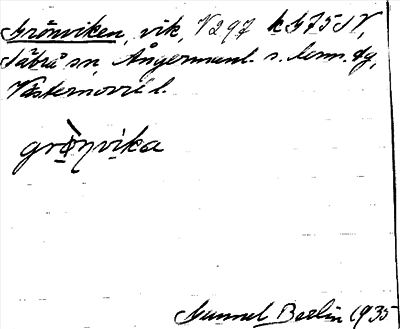 Grönviken, vik, V297 k G75 SV,
Säbrå sn, Ångermanl. s. dg,
Västernorrl l.
grònvika
Gunnel Berlin 1935